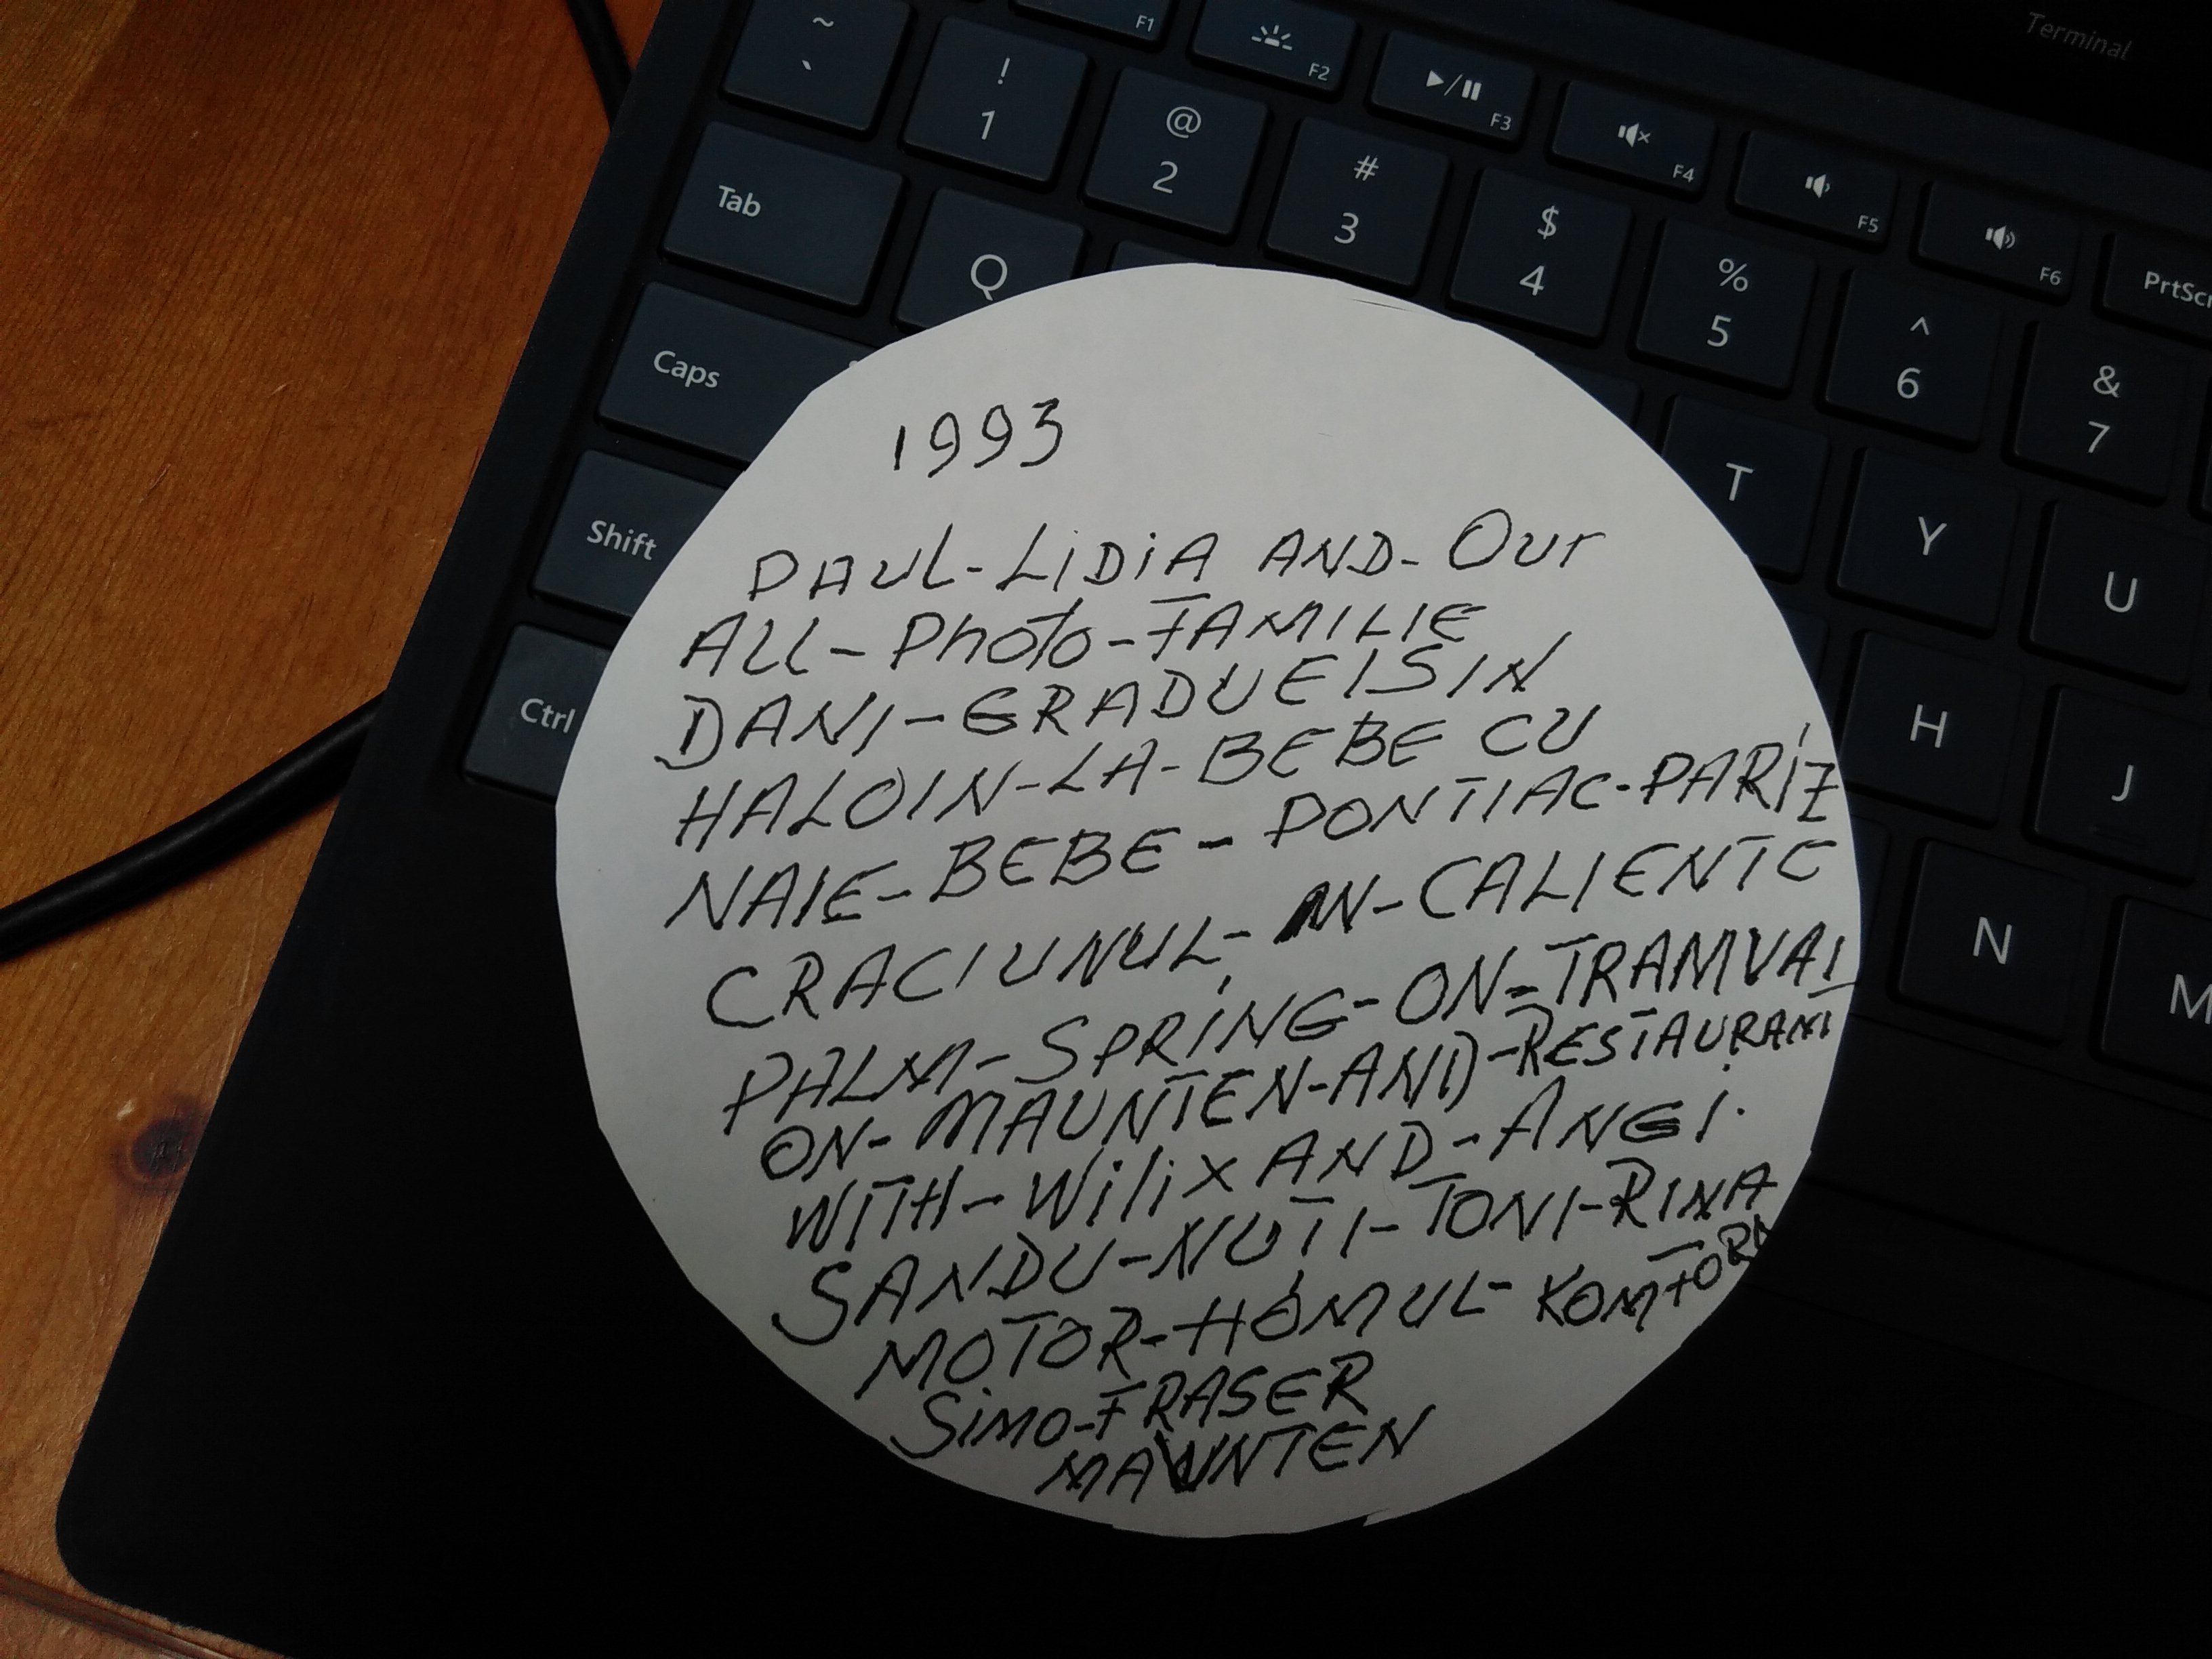 Terminal
F1
F2
F3
F4
F5
F6
PrtScr
~ `
! 1
@ 2
# 3
$ 4
% 5
^ 6
& 7
Tab
Q
T
Y
U
Caps
H
J
Shift
N
M
Ctrl
1993
PAUL-LiDiA AND-Our
ALL-Photo-FAMILIE
DANI-GRADUEISIN
HALOIN-LA-BEBE CU
NAIE-BEBE-PONTIAC-PARIZ
CRACIUNUL-IN-CALIENTE
PALM-SPRING-ON-TRAMVAI
ON-MAUNTEN-AND-RESTAURANT
WITH-Wilix AND-ANGI.
SANDU-NUTI-TONI-RINA
MOTOR-HOMUL-KOMFORT
SiMO-FRASER
MAUNTEN